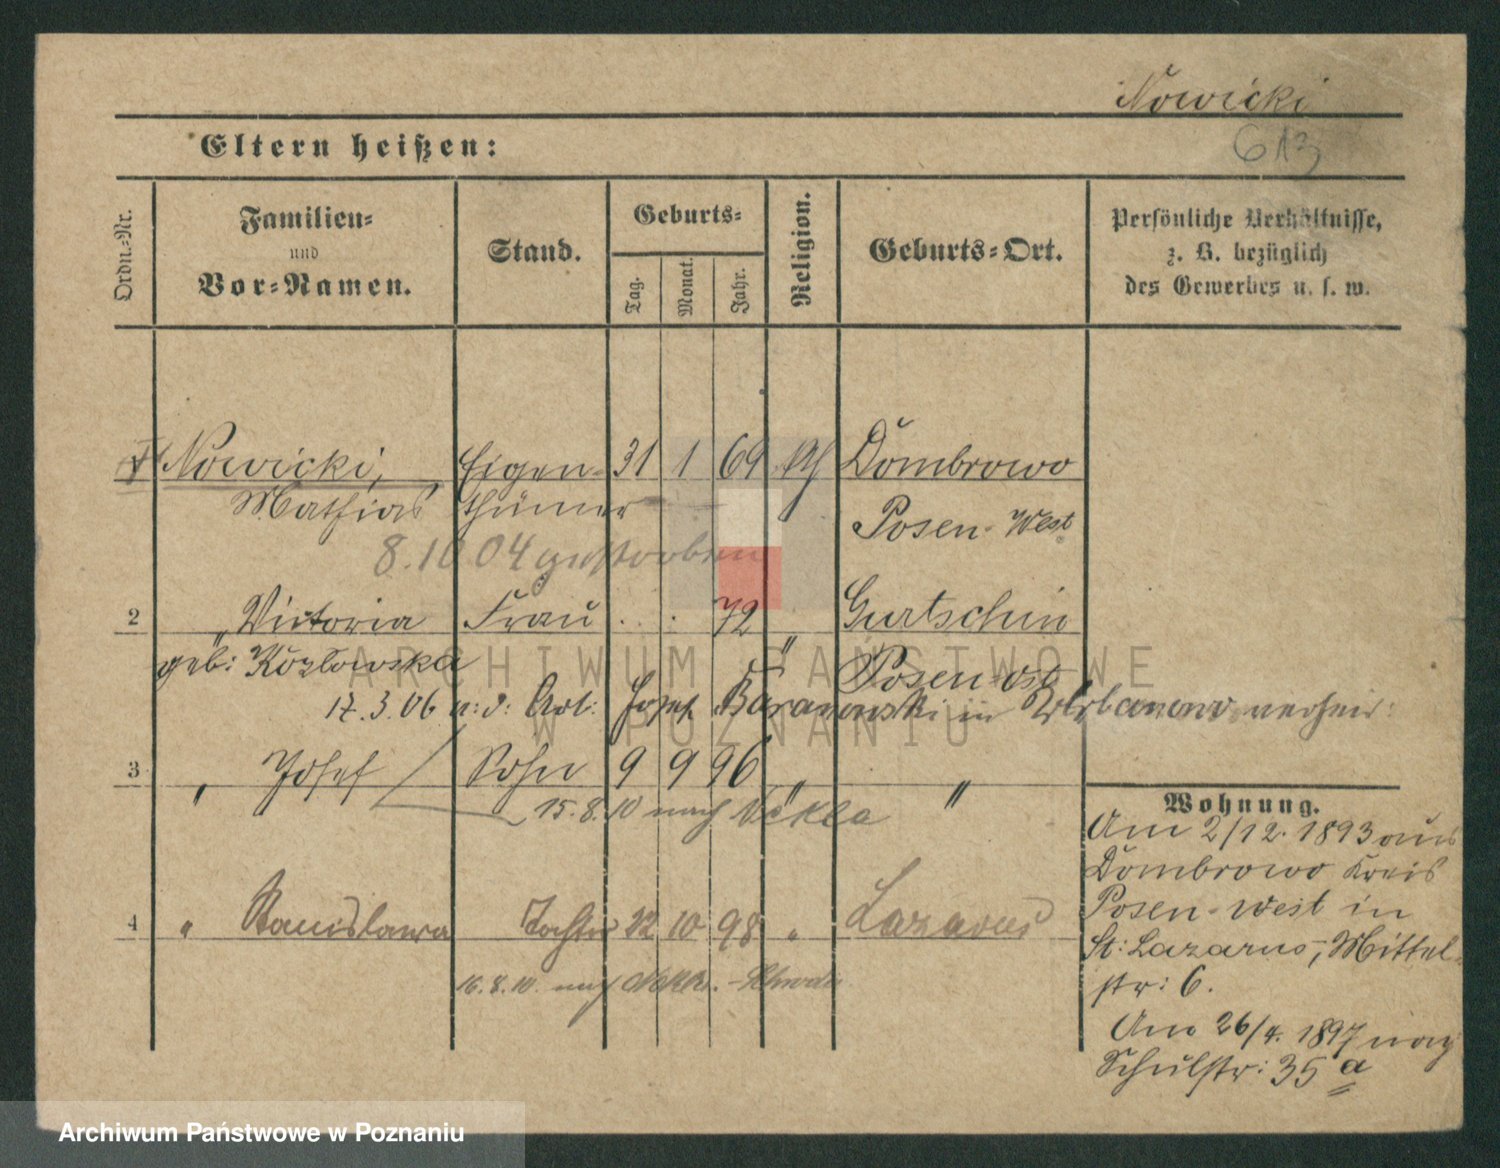 Nowicki
613
Eltern heißen:
Ordn.-Nr.
Familien-
und
Vor-Namen.
Stand.
Geburts-
Tag.
Monat.
Jahr.
Religion.
Geburts-Ort.
Persönliche Verhältnisse,
z. B. bezüglich
des Gewerbes u. s. w.
Nowicki, Eigen- 31 1 69 Dombrowo
Mathias thümer Posen-West
8.10.04 gestorben
2 " Victoria Frau . . 72 " Gurtschin
geb: Kozlowska Posen-Ost
17.3.06 m: d: Arb: Josef Baranowski in Urbanowo verheir:
3 " Josef Sohn 9 9 96 " "
15.8.10 nach Nekla
4 " Stanislawa Tochter 22 10 98 " Lazarus
16.8.10 nach Nekla
Wohnung.
Am 2/12. 1893 aus
Dombrowo Kreis
Posen-West in
St: Lazarus, Mittel-
str: 6.
Am 26/4. 1897 nach
Schulstr: 35 a
ARCHIWUM PAŃSTWOWE
W POZNANIU
Archiwum Państwowe w Poznaniu